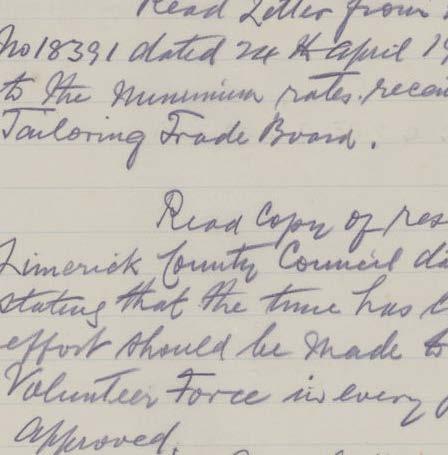 Read Letter from
No 18391 dated 24th April 19
to the minimum rates recom
Tailoring Trade Board.
Read Copy of res
Limerick County Council da
stating that the time has
effort should be made to
Volunteer Force in every
Approved.